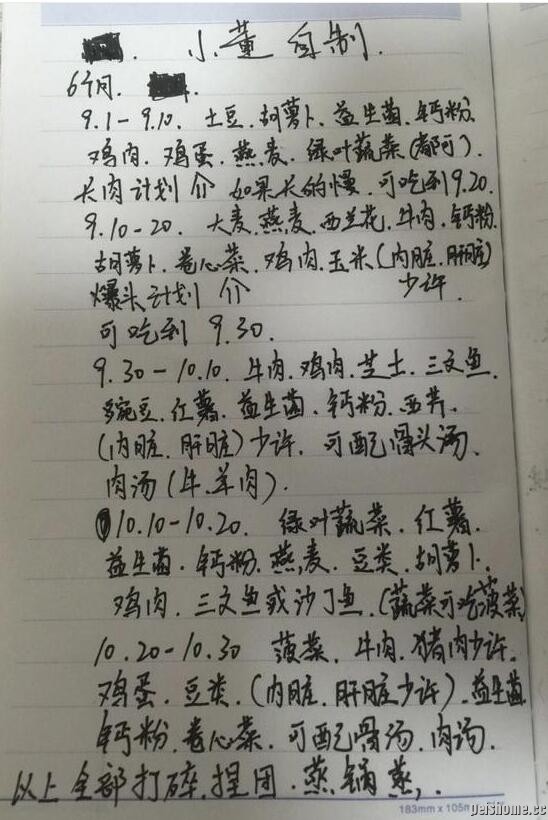 小董自制.
6个月.
9.1-9.10. 土豆.胡萝卜.益生菌.钙粉
鸡肉.鸡蛋.燕麦.绿叶蔬菜(都可).
长肉计划 介 如果长的慢.可吃到9.20.
9.10-20. 大麦.燕麦.西兰花.牛肉.钙粉
胡萝卜.卷心菜.鸡肉.玉米(内脏.肝脏)
爆头计划 介 少许.
可吃到 9.30.
9.30-10.10. 牛肉.鸡肉.芝士.三文鱼
豌豆.红薯.益生菌.钙粉.西芹.
(内脏.肝脏)少许.可配骨头汤.
肉汤(牛.羊肉).
10.10-10.20. 绿叶蔬菜.红薯.
益生菌.钙粉.燕麦.豆类.胡萝卜.
鸡肉.三文鱼或沙丁鱼.(蔬菜可吃菠菜)
10.20-10.30 菠菜.牛肉.猪肉少许.
鸡蛋.豆类.(内脏.肝脏少许).益生菌
钙粉.卷心菜.可配骨汤.肉汤.
以上全部打碎.捏团.蒸锅蒸.
183mm x 105m
petshome.cc